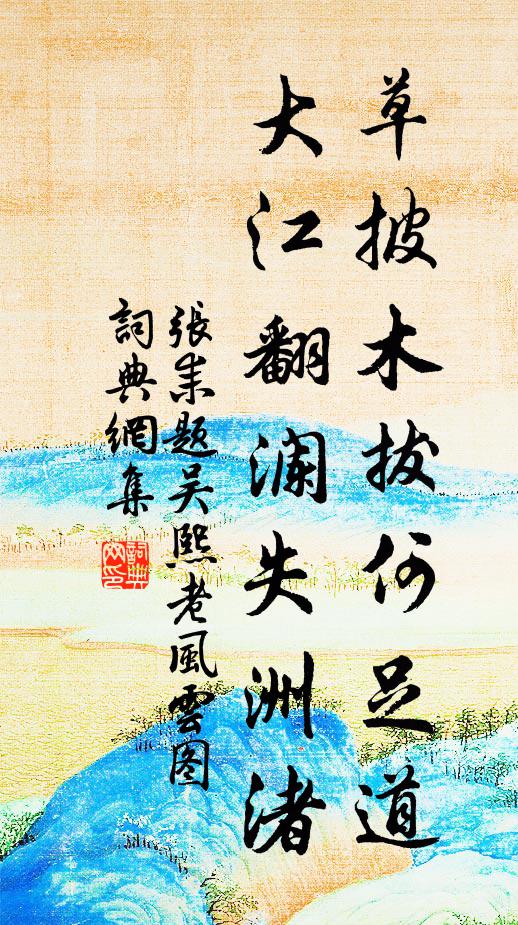 草披木拔何足道
大江翻澜失洲渚
張耒題吴熙老風雲图
詞典網集